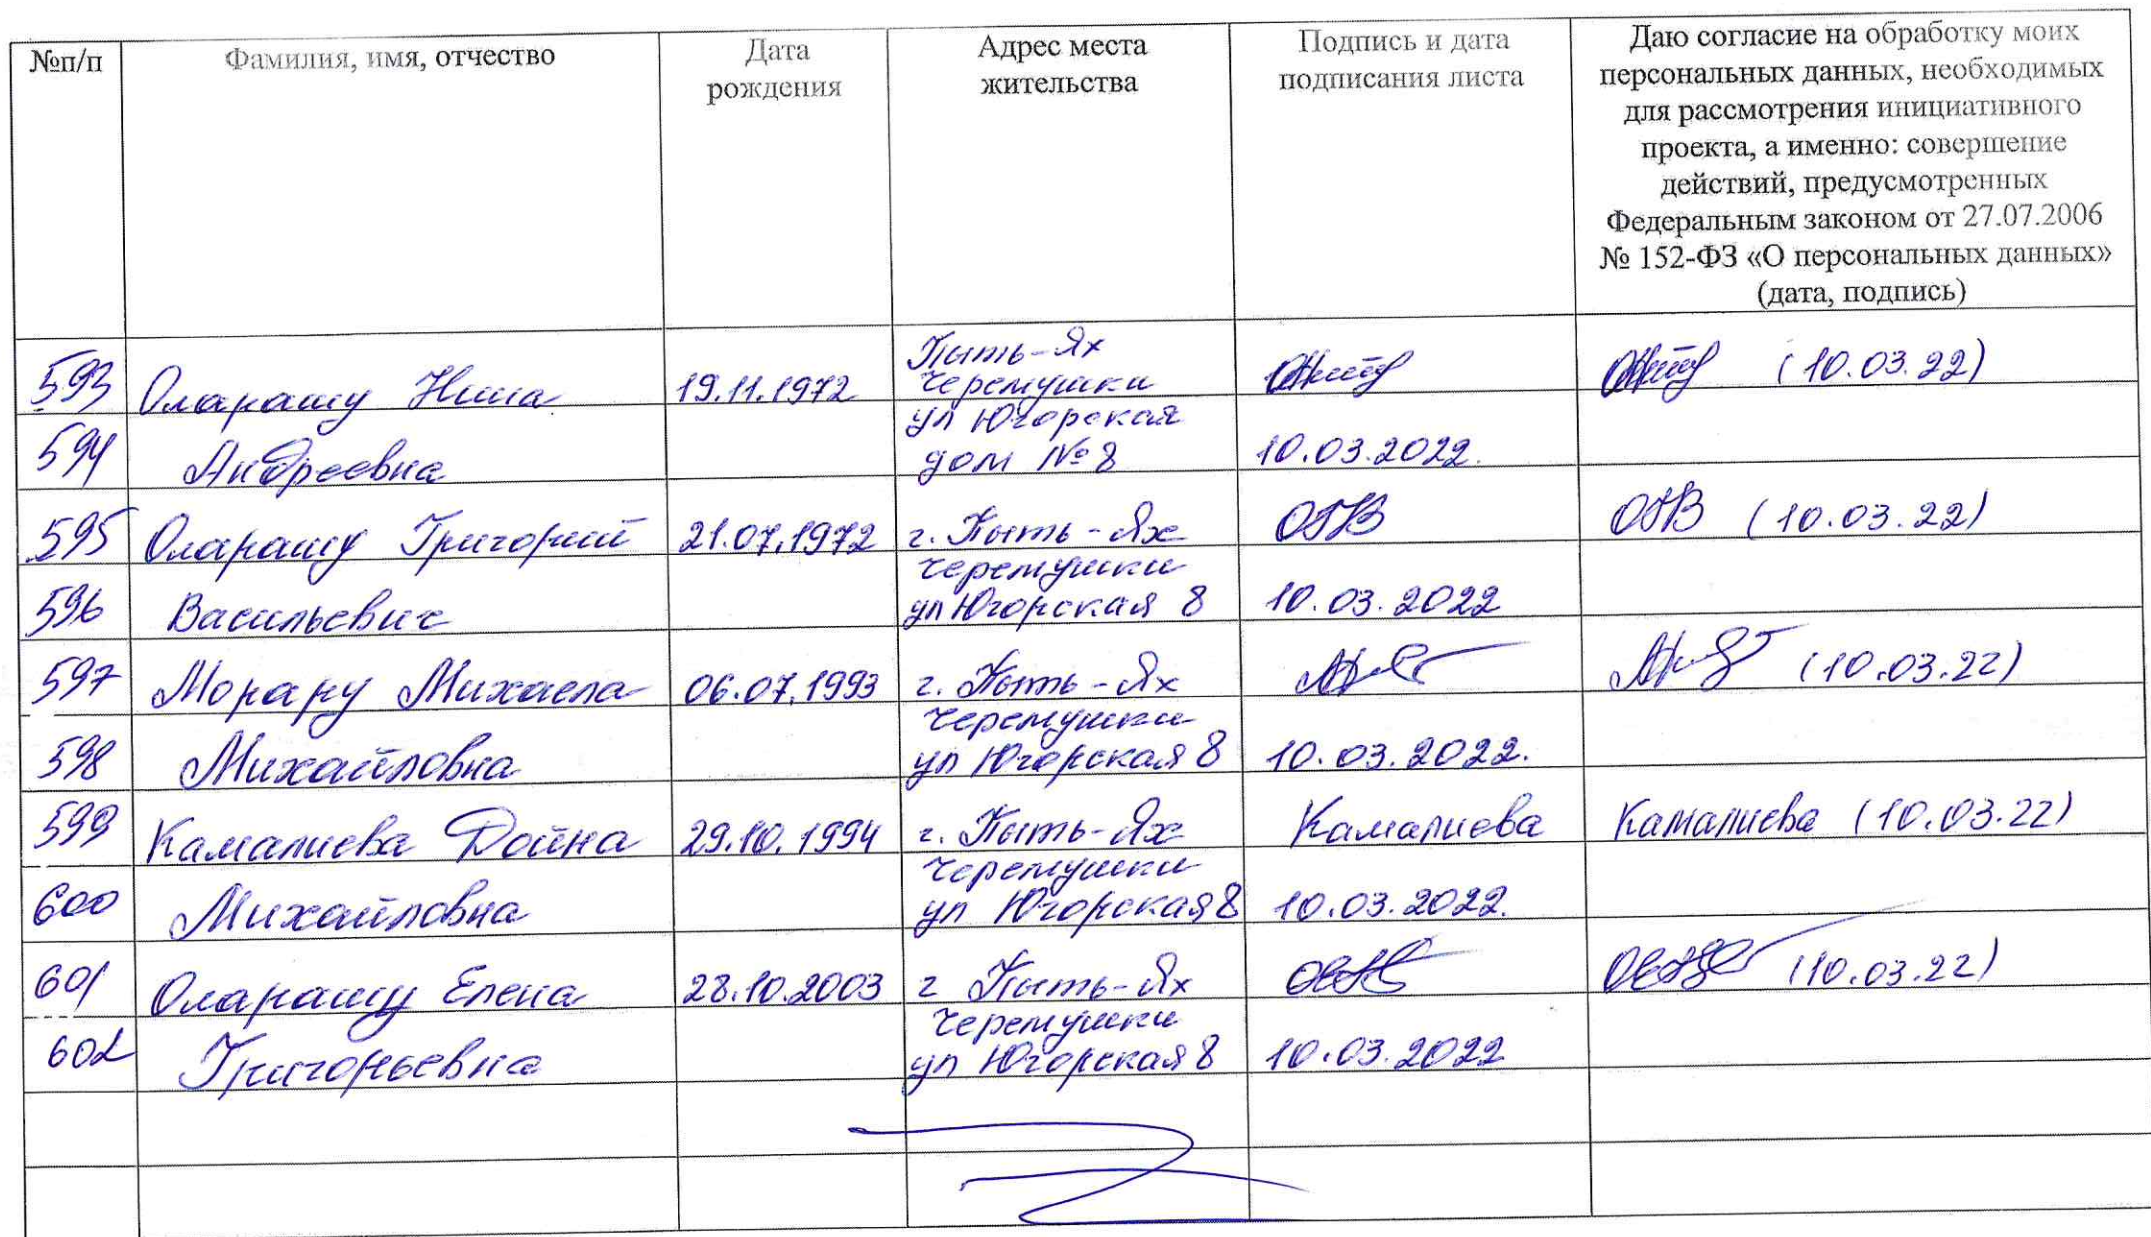 №п/п
Фамилия, имя, отчество
Дата
рождения
Адрес места
жительства
Подпись и дата
подписания листа
Даю согласие на обработку моих
персональных данных, необходимых
для рассмотрения инициативного
проекта, а именно: совершение
действий, предусмотренных
Федеральным законом от 27.07.2006
№ 152-ФЗ «О персональных данных»
(дата, подпись)
593
Оларашу Нина
19.11.1972
Пыть-Ях
Черемушки
(10.03.22)
594
Андреевна
ул Югорская
дом № 8
10.03.2022.
595
Оларашу Григорий
21.07.1972
г. Пыть-Ях
ОГВ
ОГВ (10.03.22)
596
Васильевич
Черемушки
ул Югорская 8
10.03.2022
597
Морару Михаела
06.07.1993
г. Пыть-Ях
(10.03.22)
598
Михайловна
Черемушки
ул Югорская 8
10.03.2022.
599
Камалиева Дойна
29.10.1994
г. Пыть-Ях
Камалиева
Камалиева (10.03.22)
600
Михайловна
Черемушки
ул Югорская 8
10.03.2022.
601
Оларашу Елена
28.10.2003
г Пыть-Ях
(10.03.22)
602
Григорьевна
Черемушки
ул Югорская 8
10.03.2022